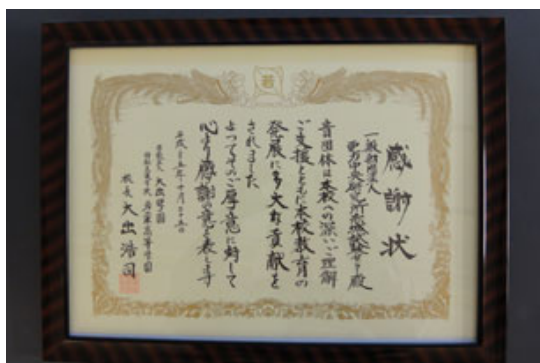 感謝状
一般財団法人
電力中央研究所 殿
貴団体は本校への深いご理解
ご支援とともに本校教育の
発展に多大な貢献を
されました
よってそのご厚意に対して
心より感謝の意を表します
平成二十五年
校長 大出浩司